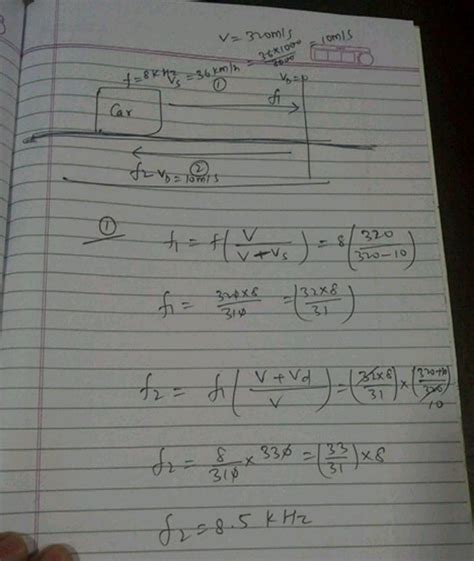 V = 320m/s
f = 8KHz Vs = 36 km/h = 36×1000/3600 = 10m/s
① VD = 0
Car f1
②
f2 VD = 10m/s
① f1 = f(V/V+Vs) = 8(320/320-10)
f1 = 320×8/310 = (32×8/31)
f2 = f1(V+Vd/V) = (32×8/31)×(320+10/320)
10
f2 = 8/310 × 330 = (33/31)×8
f2 = 8.5 KHz